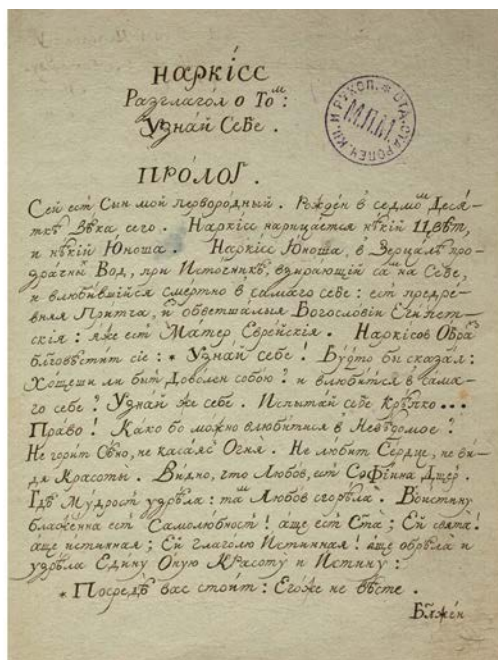 НАРКІСС
Разглагол о Том:
Узнай Себе.
М.П.М.
ПРОЛОГ.
Сей ест Сын мой первородный. Рожден в седмом Деся-
ткѣ Вѣка сего. Наркісс нарицается нѣкій Цвѣт,
и нѣкій Юноша. Наркісс Юноша, в Зерцалѣ про-
зрачных Вод, при Источникѣ, взирающій сам на Себе,
и влюбившійся смертно в самаго себе: ест предре-
вняя Притча, из обветшалыя Богословіи Египет-
скія: яже ест Матер Еврейскія. Наркісов Образ
благовѣстит сіе: * Узнай себе! Будто бы сказал:
Хощеши ли быт Доволен собою? и влюбится в сама-
го себе? Узнай же себе. Испытай себе крѣпко...
Право! Како бо можно влюбитися в Невѣдомое?
Не горит Сѣно, не касаяс Огня. Не любит Сердце, не ви-
дя Красоты. Видно, что Любов, ест Софіина Дщер.
Гдѣ Мудрост узрѣла: там Любов сгорѣла. Воистину
блаженна ест Самолюбност! аще ест Ста; Ей свята!
аще истинная; Ей глаголю Истинная! аще обрѣла и
узрѣла Едину Оную Красоту и Истину:
* Посредѣ вас стоит: Егоже не вѣсте.
Блжен